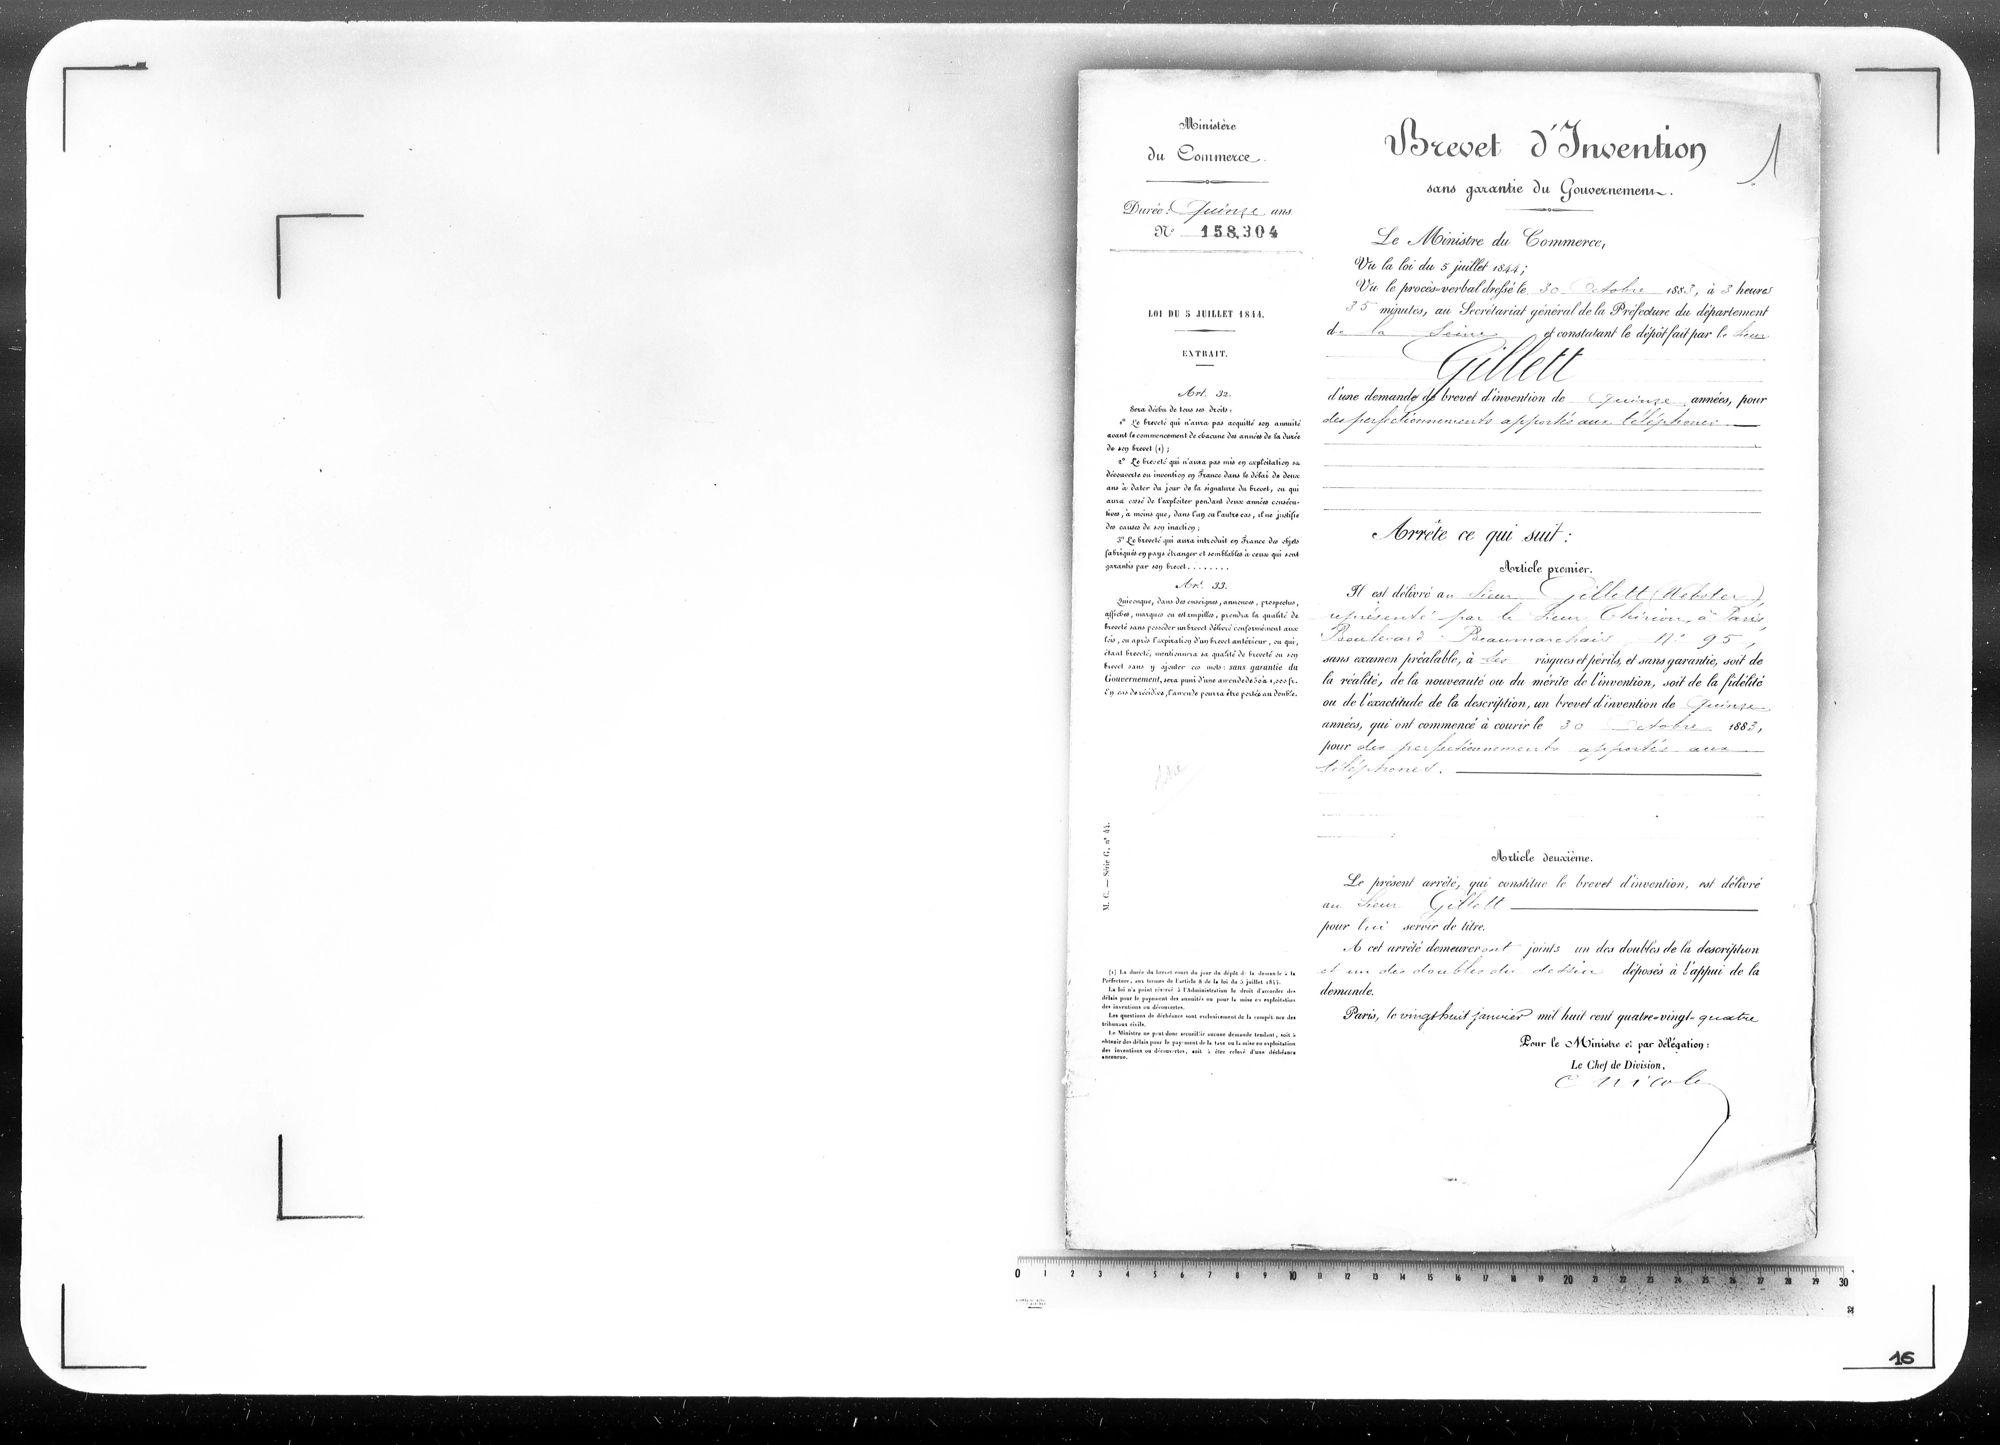 Ministère
du Commerce.
Durée: Quinze ans
N° 158,304
LOI DU 5 JUILLET 1844.
EXTRAIT.
Art. 32.
Sera déchu de tous ses droits:
1° Le breveté qui n'aura pas acquitté son annuité
avant le commencement de chacune des années de la durée
de son brevet (1);
2° Le breveté qui n'aura pas mis en exploitation sa
découverte ou invention en France dans le délai de deux
ans à dater du jour de la signature du brevet, ou qui
aura cessé de l'exploiter pendant deux années consécu-
tives, à moins que, dans l'un ou l'autre cas, il ne justifie
des causes de son inaction;
3° Le breveté qui aura introduit en France des objets
fabriqués en pays étranger et semblables à ceux qui sont
garantis par son brevet........
Art. 33.
Quiconque, dans des enseignes, annonces, prospectus,
affiches, marques ou estampilles, prendra la qualité de
breveté sans posséder un brevet délivré conformément aux
lois, ou après l'expiration d'un brevet antérieur, ou qui,
étant breveté, mentionnera sa qualité de breveté ou son
brevet sans y ajouter ces mots: sans garantie du
Gouvernement, sera puni d'une amende de 50 à 1,000 fr.
En cas de récidive, l'amende pourra être portée au double.
M. C. — Série G, n° 44.
(1) La durée du brevet court du jour du dépôt de la demande à la
Préfecture, aux termes de l'article 8 de la loi du 5 juillet 1844.
La loi n'a point réservé à l'Administration le droit d'accorder des
délais pour le payement des annuités ou pour la mise en exploitation
des inventions ou découvertes.
Les questions de déchéance sont exclusivement de la compétence des
tribunaux civils.
Le Ministre ne peut donc accueillir aucune demande tendant, soit à
obtenir des délais pour le payement de la taxe ou la mise en exploitation
des inventions ou découvertes, soit à être relevé d'une déchéance
encourue.
Brevet d'Invention
1
sans garantie du Gouvernement.
Le Ministre du Commerce,
Vu la loi du 5 juillet 1844;
Vu le procès-verbal dressé le 30 Octobre 1883, à 3 heures
35 minutes, au Secrétariat général de la Préfecture du département
de la Seine et constatant le dépôt fait par le Sieur
Gillett
d'une demande de brevet d'invention de Quinze années, pour
des perfectionnements apportés aux téléphones.
Arrête ce qui suit:
Article premier.
Il est délivré au Sieur Gillett (Webster)
représenté par le Sieur Thirion, à Paris,
Boulevard Beaumarchais, N° 95,
sans examen préalable, à ses risques et périls, et sans garantie, soit de
la réalité, de la nouveauté ou du mérite de l'invention, soit de la fidélité
ou de l'exactitude de la description, un brevet d'invention de Quinze
années, qui ont commencé à courir le 30 Octobre 1883,
pour des perfectionnements apportés aux
téléphones.
Article deuxième.
Le présent arrêté, qui constitue le brevet d'invention, est délivré
au Sieur Gillett
pour lui servir de titre.
A cet arrêté demeureront joints un des doubles de la description
et un des doubles du dessin déposés à l'appui de la
demande.
Paris, le vingt huit janvier mil huit cent quatre-vingt-quatre
Pour le Ministre et par délégation:
Le Chef de Division,
0 1 2 3 4 5 6 7 8 9 10 11 12 13 14 15 16 17 18 19 20 21 22 23 24 25 26 27 28 29 30
16